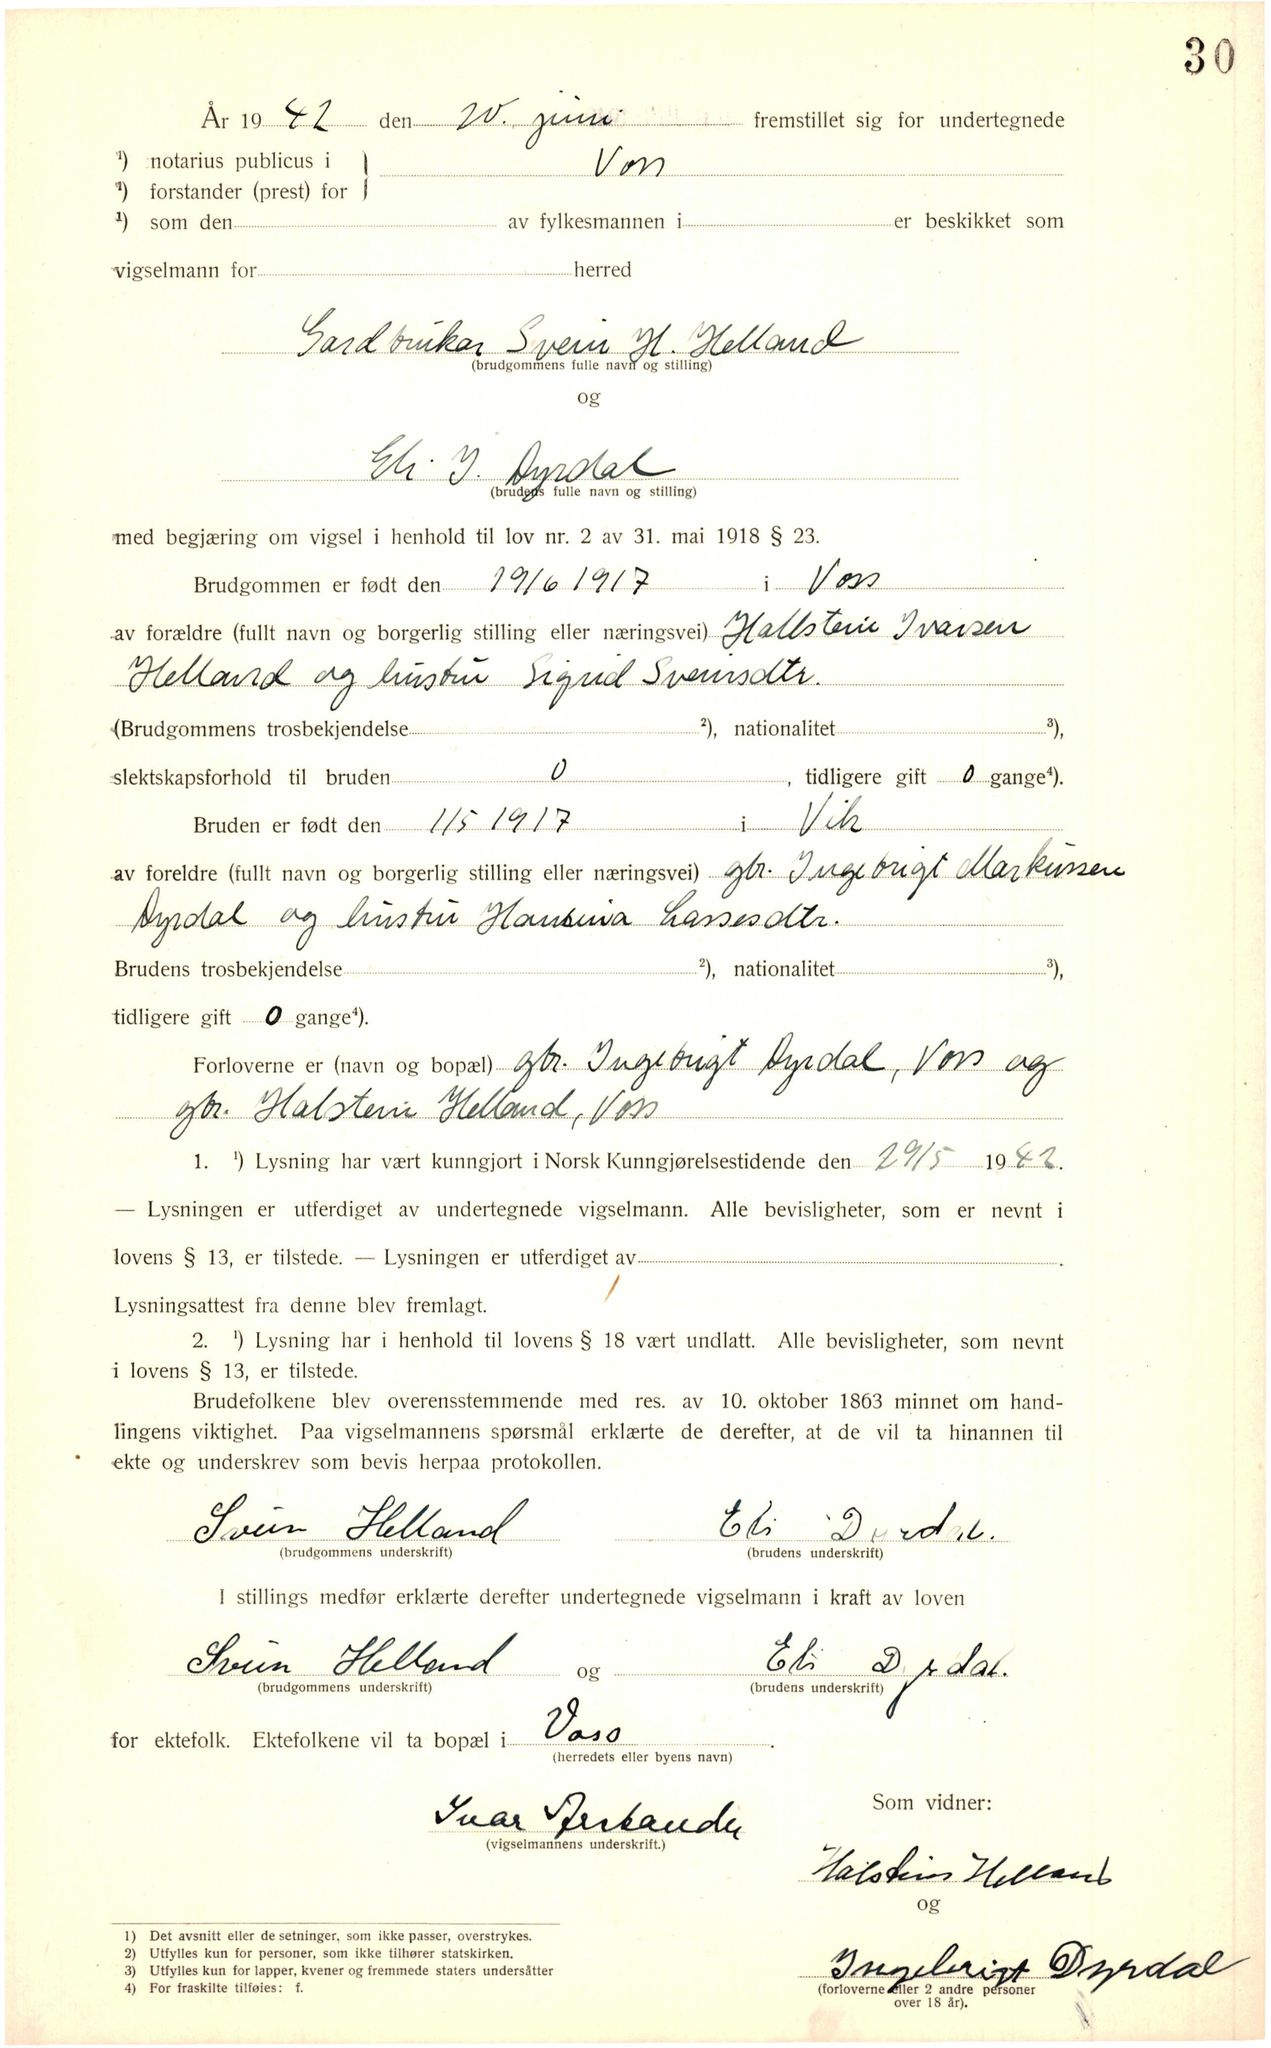 30
År 1942 den 20. juni fremstillet sig for undertegnede
¹) notarius publicus i } Voss
¹) forstander (prest) for
¹) som den av fylkesmannen i er beskikket som
vigselmann for herred
Gardbrukar Svein H. Helland
(brudgommens fulle navn og stilling)
og
Eli I. Dyrdal
(brudens fulle navn og stilling)
med begjæring om vigsel i henhold til lov nr. 2 av 31. mai 1918 § 23.
Brudgommen er født den 19/6 1917 i Voss
av forældre (fullt navn og borgerlig stilling eller næringsvei) Hallstein Ivarsen
Helland og hustru Sigrid Sveinsdtr.
(Brudgommens trosbekjendelse ²), nationalitet ³),
slektskapsforhold til bruden 0, tidligere gift 0 gange⁴).
Bruden er født den 1/5 1917 i Vik
av foreldre (fullt navn og borgerlig stilling eller næringsvei) gbr. Ingebrigt Markussen
Dyrdal og hustru Hansina Lassesdtr.
Brudens trosbekjendelse ²), nationalitet ³),
tidligere gift 0 gange⁴).
Forloverne er (navn og bopæl) gbr. Ingebrigt Dyrdal, Voss og
gbr. Halstein Helland, Voss
1. ¹) Lysning har vært kunngjort i Norsk Kunngjørelsestidende den 29/5 1942.
— Lysningen er utferdiget av undertegnede vigselmann. Alle bevisligheter, som er nevnt i
lovens § 13, er tilstede. — Lysningen er utferdiget av .
Lysningsattest fra denne blev fremlagt.
2. ¹) Lysning har i henhold til lovens § 18 vært undlatt. Alle bevisligheter, som nevnt
i lovens § 13, er tilstede.
Brudefolkene blev overensstemmende med res. av 10. oktober 1863 minnet om hand-
lingens viktighet. Paa vigselmannens spørsmål erklærte de derefter, at de vil ta hinannen til
ekte og underskrev som bevis herpaa protokollen.
Svein Helland Eli Dyrdal.
(brudgommens underskrift) (brudens underskrift)
I stillings medfør erklærte derefter undertegnede vigselmann i kraft av loven
Svein Helland og Eli Dyrdal.
(brudgommens underskrift) (brudens underskrift)
for ektefolk. Ektefolkene vil ta bopæl i Voss.
(herredets eller byens navn)
Ivar
(vigselmannens underskrift.)
Som vidner:
Halstein Helland
og
Ingebrigt Dyrdal
(forloverne eller 2 andre personer
over 18 år).
1) Det avsnitt eller de setninger, som ikke passer, overstrykes.
2) Utfylles kun for personer, som ikke tilhører statskirken.
3) Utfylles kun for lapper, kvener og fremmede staters undersåtter
4) For fraskilte tilføies: f.